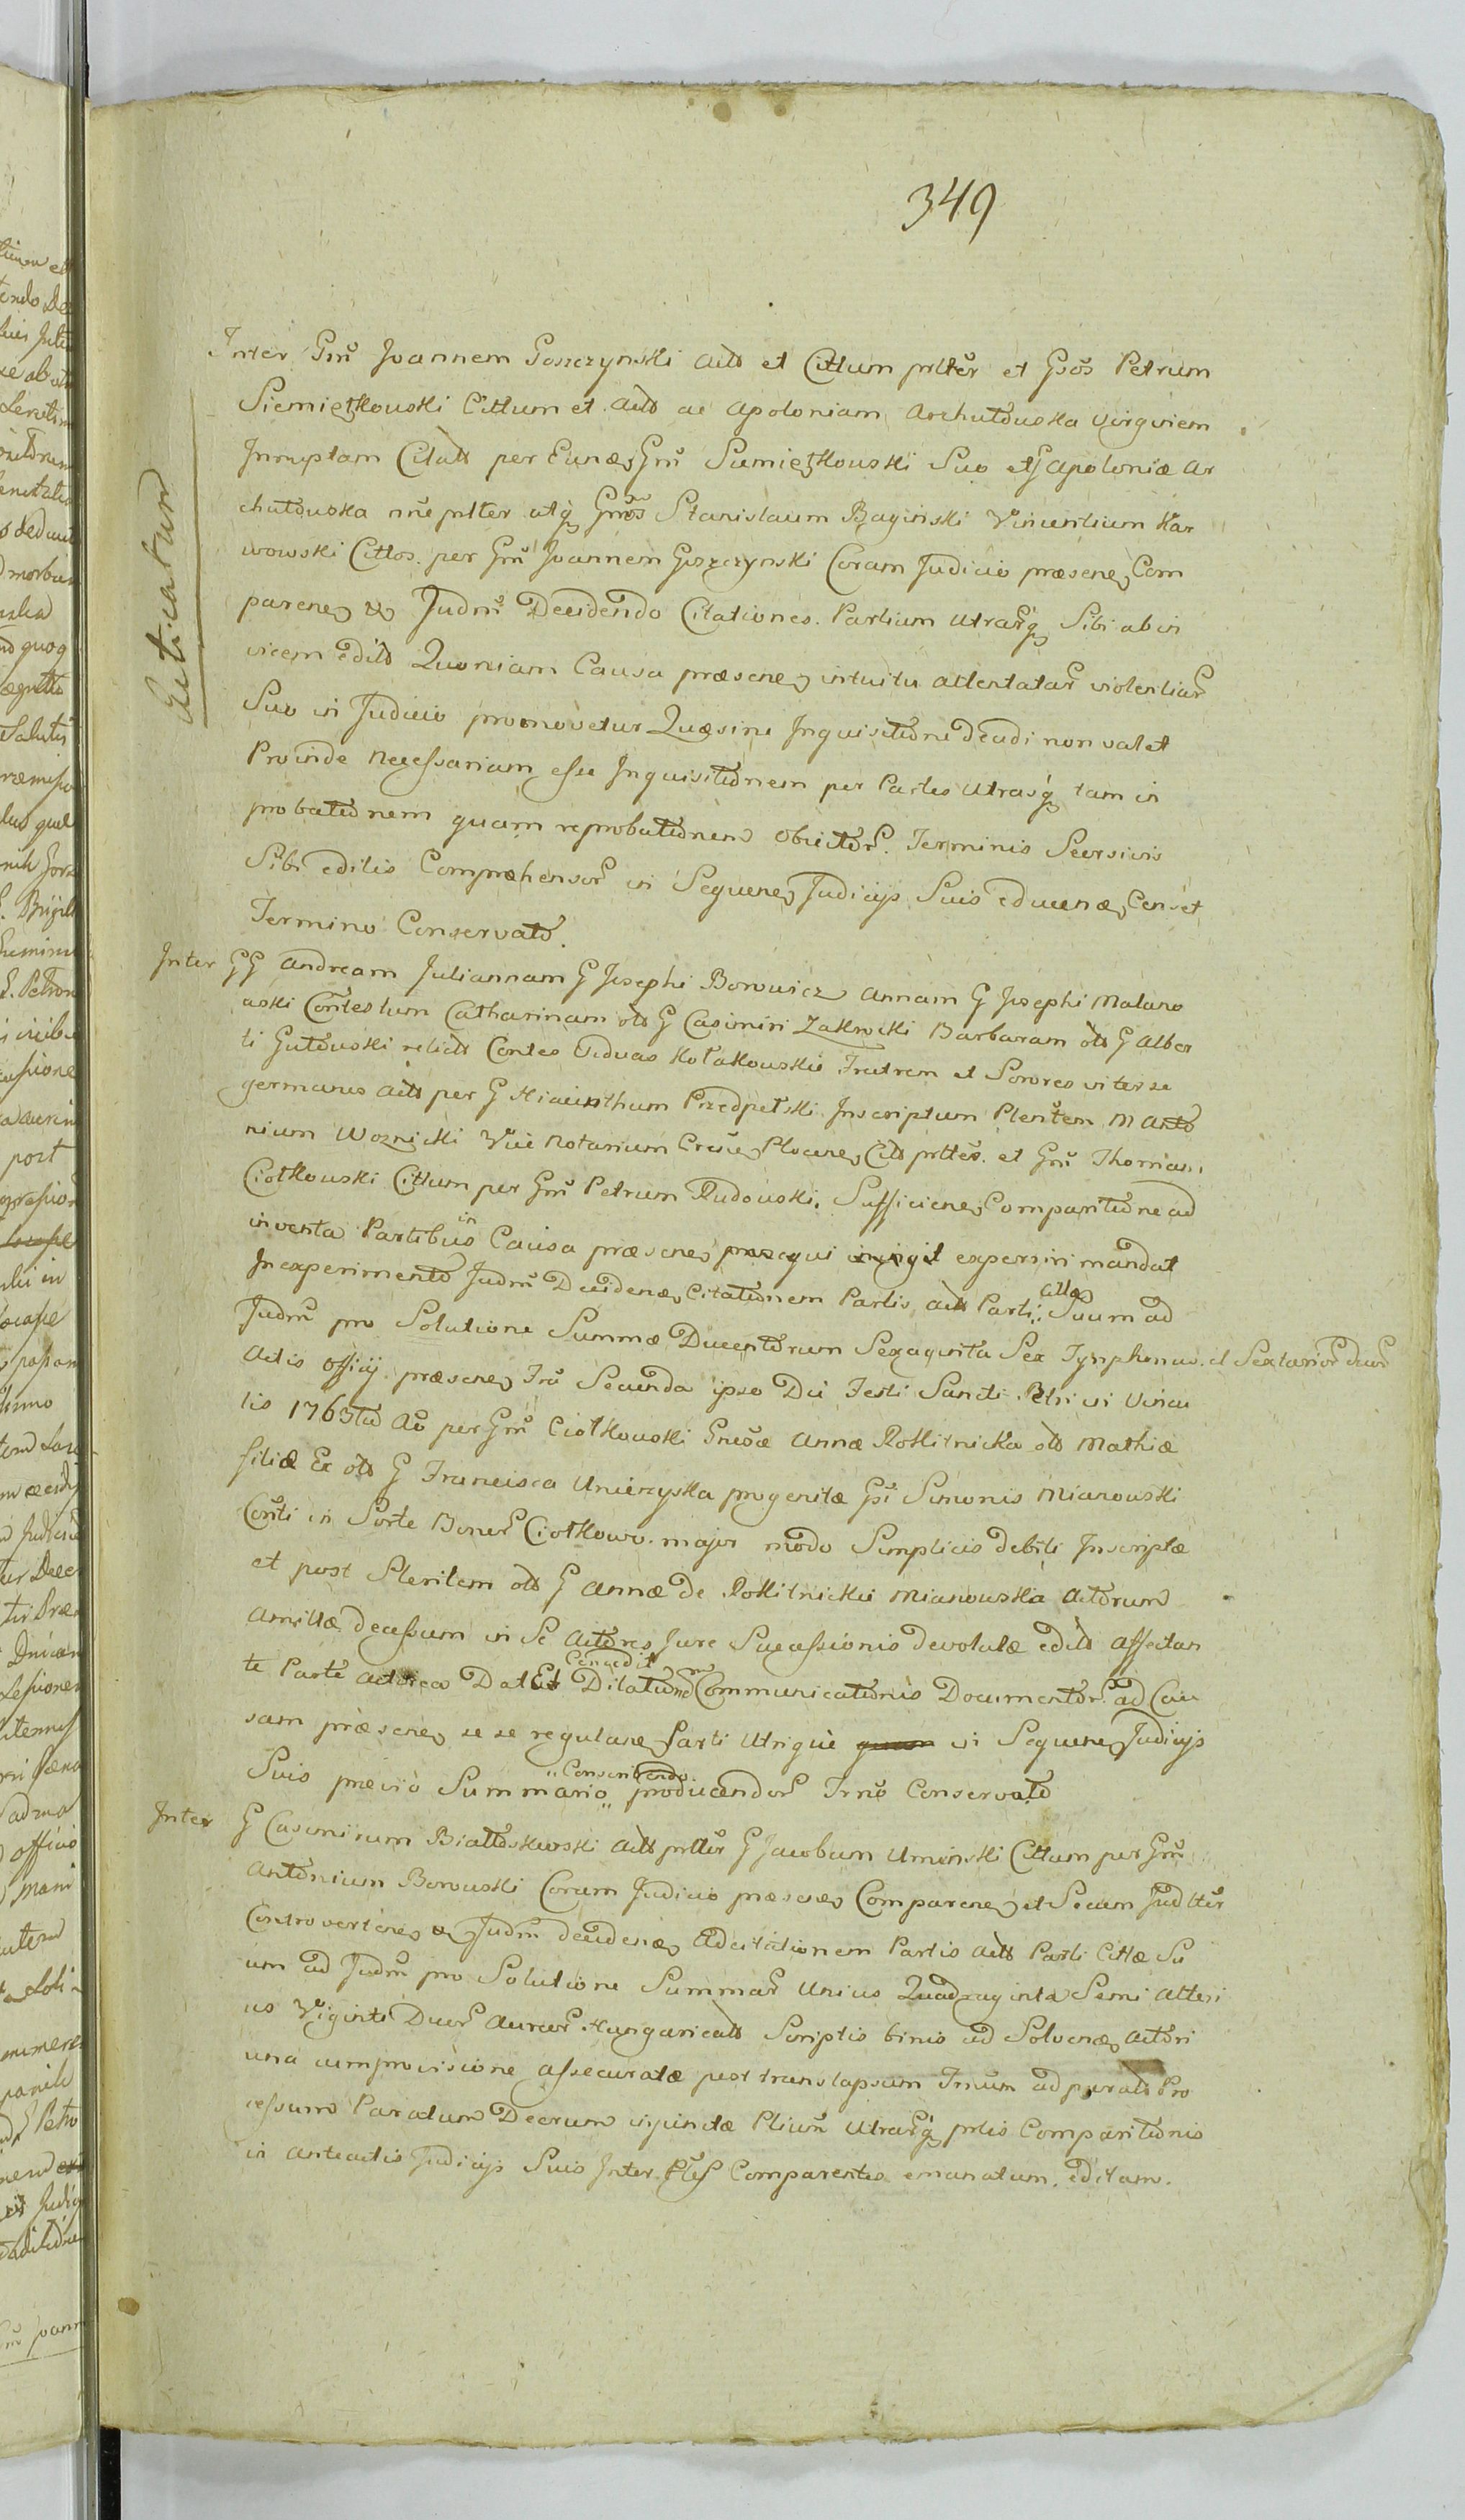 349
Inter Gnũ Joannem Goszczynski Actõ et Cittum prltẽr et Gsõs Petrum
Siemiętkouski Cittum et Actõ ac Apoloniam Archutõuska virginem
Innuptam Citatõ per Eunđ Gnũ Siemiętkouski Suo et G Apoloniæ Ar
chutõuska nñe prlter atq Gnrõs Stanislaum Baginski Vincentium Kar
wowski Cittos. per Gnũ Joannem Goszczynski Coram Judicio præsenẽ Com
parenẽ & Judm̃ Decidendo Citationes. Partium Utrarq Sibi ab in
vicem editõ Quoniam Causa præsenẽ intuitu attentatar̃ violentiar̃
Suo in Judicio promovetur Quæ sine Inquisitiõne dẽcidi non valet
Proinde Necessariam esse Inquisitiõnem per Partes Utrasq tam in
probatiõnem quam reprobatiõnem obiectõr̃. Terminis Seorsivis
Sibi editis Compræhensor̃ in Sequenẽ Judicijs Suis educenđ Censet
Termino Conservatõ.
Rect: catum
Inter GG Andream Juliannam G Josephi Borowicz Annam G Josephi Malano
uski Cõntestum Catharinam otõ G Casimiri Zakrocki Barbaram otõ G Alber
ti Gutõuski relictõ Contes Viduas Kołakouskie Fratrem et Sorores inter se
germanos Actõ per G Hiacinthum Przedpełski Inscriptum Plenr̃tem M Antõ
nium Woznicki Vicẽ Notarium Cresũ Plocenẽ Citõ prltẽs. et Gnũ Thomam
Ciołkouski Cittum per Gnũ Petrum Rudouski. Sufficienẽ Comparitiõne ad
inventa Partibus in Causa præsenẽ prosequi iniungit experiri mandat
In experimentõ Judm̃ Decidenđ Citatiõnem Partis Actõ Parti Cittæ Suum ad
Judm̃ pro Solutione Summæ Ducentõrum Sexaginta Sex Tynphonus. et Sextarior̃ duor̃
Actis Officij præsenẽ Frã Secunda ipso Die Festi Sancti Petri in Vincu
lis 1763tiõ Aõ per Gnũ Ciołkouski Gnrõsæ Annæ Rokitnicka otõ Mathiæ
filiæ Ex otõ G Francisca Unierzyska progenitæ Gsĩ Simonis Mianouski
Cõnti in Sorte Bonor̃ Ciołkowo. major modo Simplicis debiti Inscriptæ
et post Sterilem otõ G Annæ de Rokitnickie Mianouska Actõrum
Amittæ decessum in Se Actõres Jure Successionis devolutæ editõ Affectan
te Parte Actõrea Dat Et Concedit Dilatiõnem Communicatiõnis Documentõr̃ ad Cau
sam præsenẽ se se regulanẽ Parti Utrique in Sequenẽ Judicijs
Suis prævio Summario Conscribendo producendor̃ Trno Conservatõ
Inter G Casimirum Białłoskurski Actõ prltẽr G Jacobum Uminski Cittum per Gnũ
Antõnium Borouski Coram Judicio præsenẽ Comparenẽ et Secum Judltẽr
Controvertenẽ & Judm̃ decidenđ Ad citationem Partis Actõ Parti Cittæ Su
um ad Judm̃ pro Solutione Summar̃ Unius Quadraginta Semi Alteri
us Viginti Duor̃ Aureor̃ Hungaricalõ Scriptis binis ad Solvenđ Actõri
una cum provisione assecuratæ post translapsum Trnum ad paratõ Pro
cessum Paratum Decrum vi junctæ Ptium Utrarq prlis Comparitiõnis
in anteactis Judicijs Suis Inter Ptes Comparentes emanatum. editam.